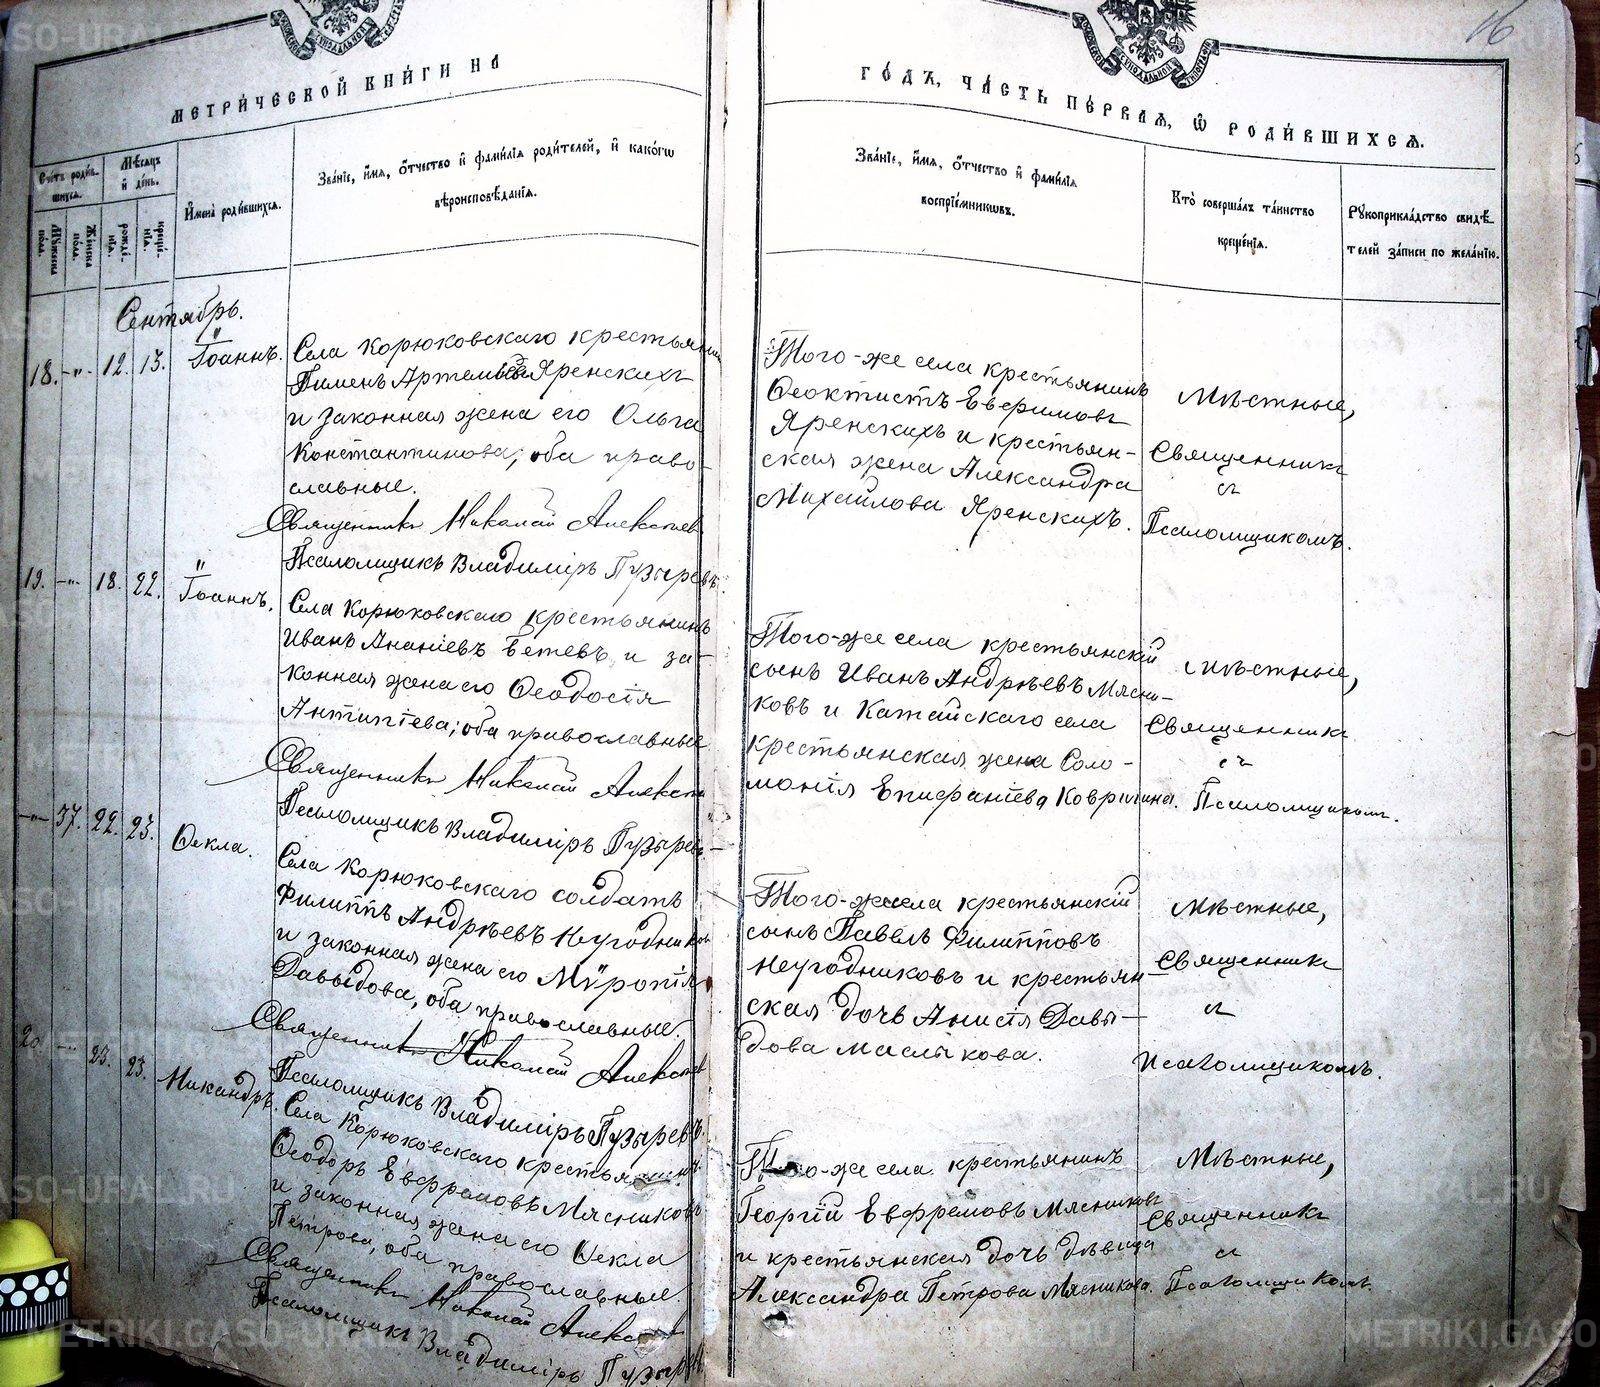 16
МЕТРИ́ЧЕСКОЙ КНИ́ГИ НА
ГО́ДЪ, ЧА́СТЬ ПЕ́РВАЯ, Ѿ РОДИ́ВШИХСЯ.
Сче́тъ роди́в-
шихся.
Мѣ́сяцъ
и де́нь.
Мꙋ́жеска
по́ла.
Же́нска
по́ла.
рожде́-
нїя.
креще́-
нїя.
И҆мена̀ роди́вшихся.
Зва́нїе, и҆́мя, о҆́тчество и҆ фамѝлїя роди́телей, и҆ како́гѡ
вѣроисповѣ́данїя.
Зва́нїе, и҆́мя, о҆́тчество и҆ фамѝлїя
воспрїе́мникѡвъ.
Кто̀ соверша́лъ та́инство
креще́нїя.
Рꙋкоприкла́дство свидѣ́-
телей за́писи по жела́нїю.
Сентябрь.
18. -"- 12. 13. Іоаннъ.
Села Корюковскаго крестьянинъ
Пименъ Артемьевъ Яренскихъ
и законная жена его Ольга
Константинова; оба право-
славные.
Священникъ Николай Алексѣев
Псаломщикъ Владиміръ Пузыревъ.
Того-же села крестьянинъ
Ѳеоктистъ Евфимовъ
Яренскихъ и крестьян-
ская жена Александра
Михайлова Яренскихъ.
Мѣстные,
Священникъ
съ
Псаломщикомъ.
19. -"- 18. 22. Іоаннъ.
Села Корюковскаго крестьянинъ
Иванъ Ананіевъ Бетевъ и за-
конная жена его Ѳеодосія
Антипіева; оба православные
Священникъ Николай Алексѣ
Псаломщикъ Владиміръ Пузырев
Того-же села крестьянскій
сынъ Иванъ Андрѣевъ Мясни-
ковъ и Катайскаго села
крестьянская жена Соло-
монія Епифаніева Ковригина.
Мѣстные,
Священникъ
съ
Псаломщиком.
-"- 37. 22. 23. Ѳекла.
Села Корюковскаго солдатъ
Филиппъ Андрѣевъ Неугодников
и законная жена его Мѵропія
Давыдова, оба православные.
Священникъ Николай Алексѣев
Псаломщикъ Владиміръ Пузыревъ.
Того-же села крестьянскій
сынъ Павелъ Филипповъ
Неугодниковъ и крестьян-
ская дочь Анисія Давы-
дова Маслыкова.
Мѣстные,
Священникъ
съ
Псаломщикомъ.
20 -"- 23. 23. Никандръ.
Села Корюковскаго крестьянинъ
Ѳеодоръ Евфремовъ Мясниковъ
и законная жена его Ѳекла
Петрова, оба православные.
Священникъ Николай Алексѣев
Псаломщикъ Владиміръ Пузырев
Того-же села крестьянинъ
Георгій Евфремовъ Мясниковъ
и крестьянская дочь дѣвица
Александра Петрова Мясникова.
Мѣстные,
Священникъ
съ
Псаломщикомъ.
METRIKI.GASO-URAL.RU
METRIKI.GASO